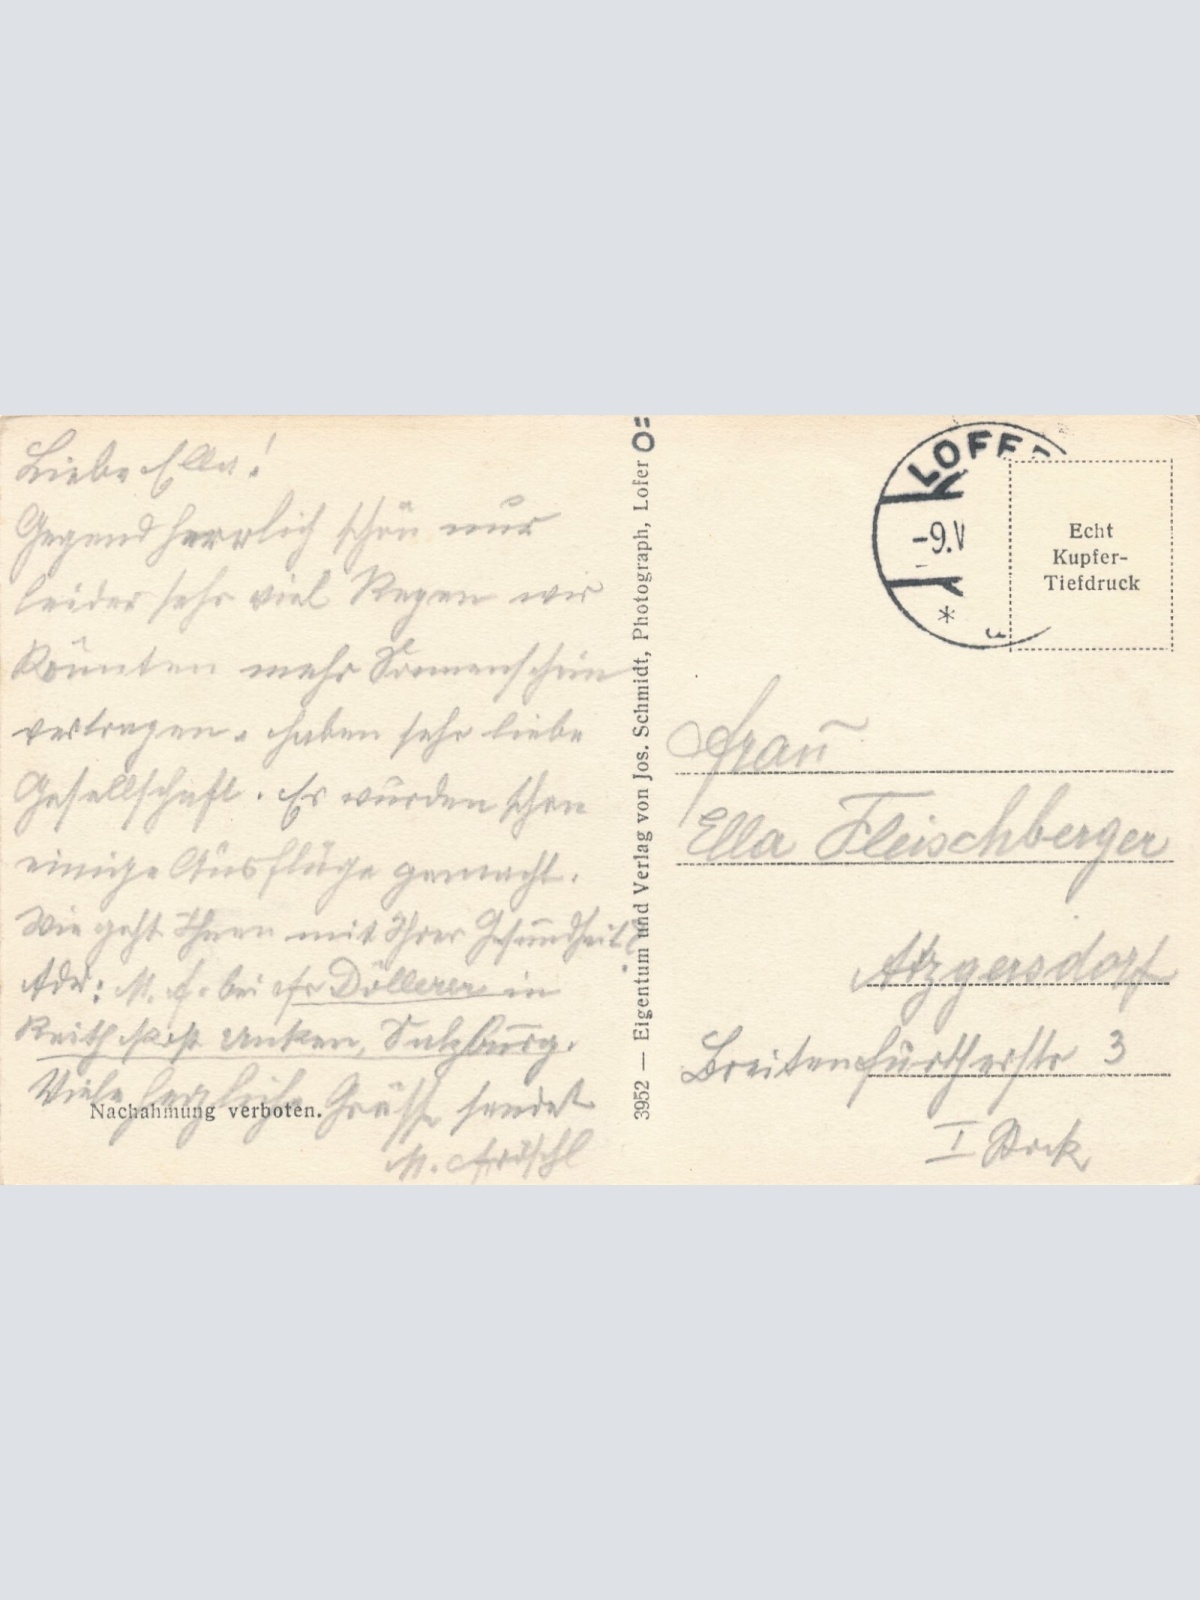 Liebe Ella!
Gegend herrlich schön nur
leider sehr viel Regen wir
könnten mehr Sonnenschein
vertragen. haben sehr liebe
Gesellschaft. Es wurden schon
einige Ausflüge gemacht.
Wie geht Ihnen mit Ihrer Gesundheit?
Adr: M. F. bei Fr Döllerer in
Reith Post Unken, Salzburg.
Viele herzliche Grüsse sendet
M. Fröschl
Nachahmung verboten.
3952 — Eigentum und Verlag von Jos. Schmidt, Photograph, Lofer
LOFE
-9.V
*
Echt
Kupfer-
Tiefdruck
Frau
Ella Fleischberger
Atzgersdorf
Breitenfurtherstr 3
I Stock